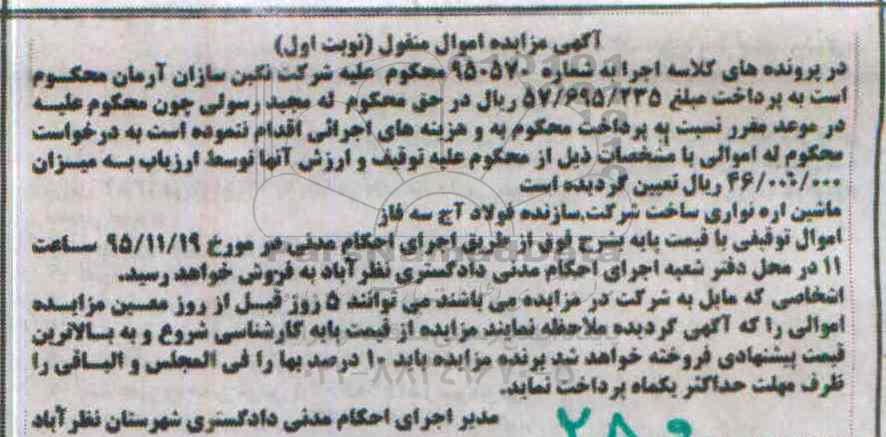 آگهی مزایده اموال منقول (نوبت اول)
در پرونده های کلاسه اجرا به شماره ۹۵۰۵۷۰ محکوم علیه شرکت نگین سازان آرمان محکوم
است به پرداخت مبلغ ۵۷/۶۹۵/۲۳۵ ریال در حق محکوم له مجید رسولی چون محکوم علیه
در موعد مقرر نسبت به پرداخت محکوم به و هزینه های اجرائی اقدام ننموده است به درخواست
محکوم له اموالی با مشخصات ذیل از محکوم علیه توقیف و ارزش آنها توسط ارزیاب به میزان
۴۶/۰۰۰/۰۰۰ ریال تعیین گردیده است
ماشین اره نواری ساخت شرکت سازنده فولاد آج سه فاز
اموال توقیفی با قیمت پایه بشرح فوق از طریق اجرای احکام مدنی در مورخ ۹۵/۱۱/۱۹ ساعت
۱۱ در محل دفتر شعبه اجرای احکام مدنی دادگستری نظرآباد به فروش خواهد رسید.
اشخاصی که مایل به شرکت در مزایده می باشند می توانند ۵ روز قبل از روز معین مزایده
اموالی را که آگهی گردیده ملاحظه نمایند مزایده از قیمت پایه کارشناسی شروع و به بالاترین
قیمت پیشنهادی فروخته خواهد شد برنده مزایده باید ۱۰ درصد بها را فی المجلس و الباقی را
ظرف مهلت حداکثر یکماه پرداخت نماید.
مدیر اجرای احکام مدنی دادگستری شهرستان نظرآباد
ParsNamadData